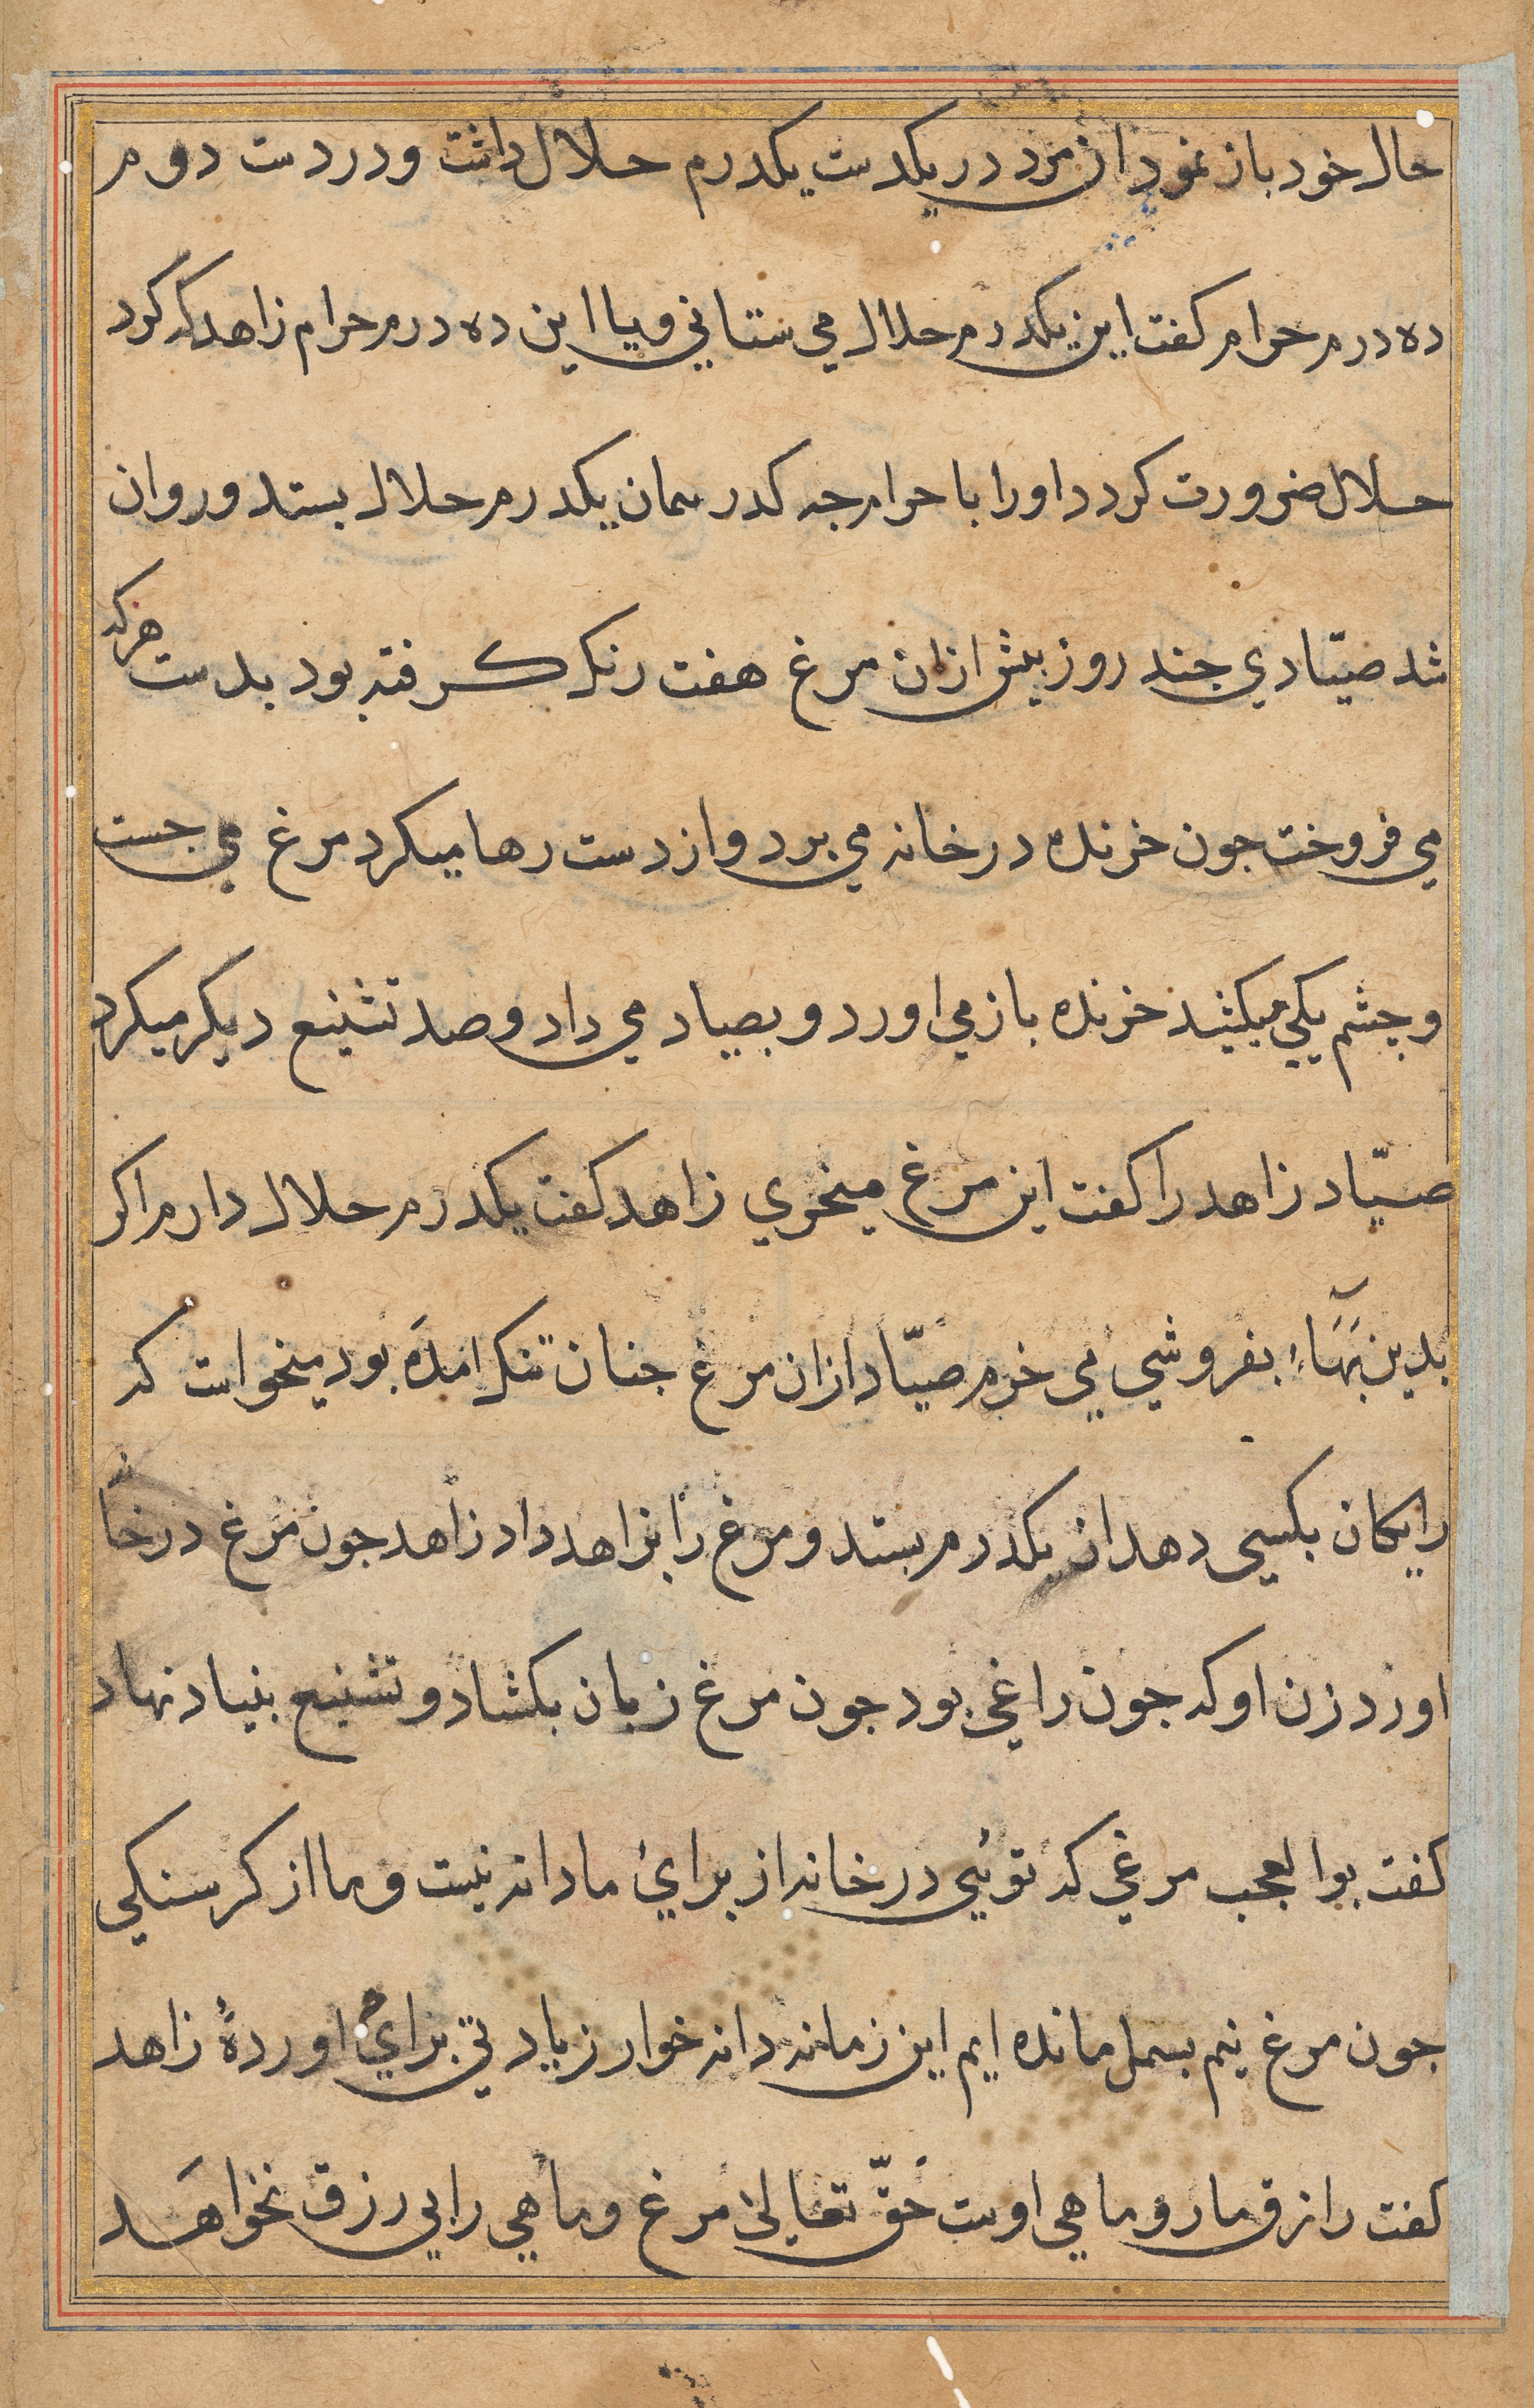 حال خود باز نمود ان مرد در یکدست یکدرم حلال داشت ودر دست دوم
ده درم حرام کفت این یکدرم حلال می ستانی ویا این ده درم حرام زاهد که کرد
حلال ضرورت کردد اورا با حرام جه کدر همان یکدرم حلال بستد وروان
شد صیّادی جند روز بیش ازان مرغ هفت رنک کرفته بود بدست هرکه
می فروخت جون خرنده در خانه می برد واز دست رها میکرد مرغ می جست
و جشم یکی میکشد خرنده باز می اورد و بصیاد می داد وصد تشنیع دیکر میکرد
صیّاد زاهد را کفت این مرغ میخری زاهد کفت یکدرم حلال دارم اکر
بدین بَهَاء بفروشی می خرم صیّاد ازان مرغ جنان تنک امدَه بود میخواست که
رایکان بکسی دهد ان یکدرم بستد ومرغ را بزاهد داد زاهد جون مرغ در خا
اورد زن او که جون راغی بود جون مرغ زبان بکشاد و تشنیع بنیاد نهاد
کفت بوالعجب مرغی که توئی در خانه از برای ما دانه نیست وما از کرسنکی
جون مرغ نیم بسمل مانده ایم این زمانه دانه خوار زیادتی برای اوردهٔ زاهد
کفت رازق مار وماهی اوست حَقّ تعالی مرغ وماهی را بی رزق نخواهَد